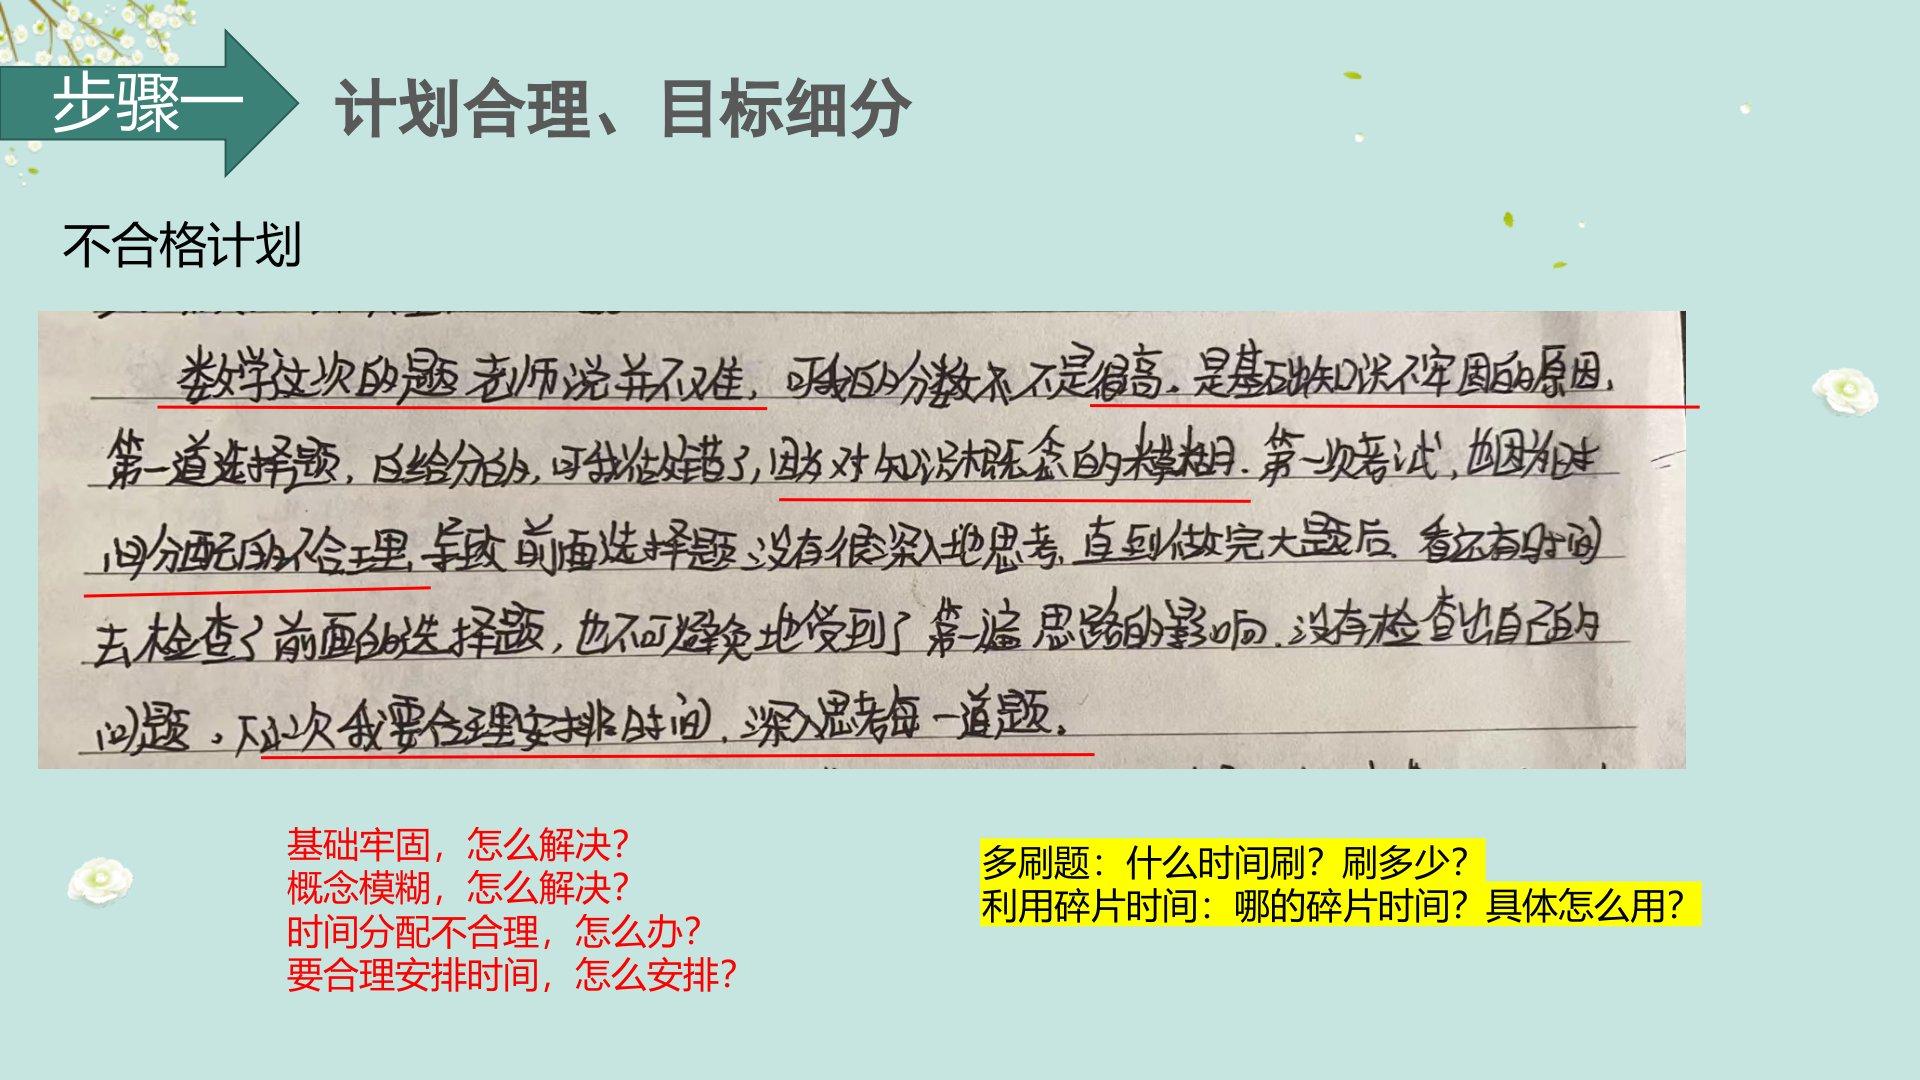 步骤一
计划合理、目标细分
不合格计划
数学这次的题老师说并不难,可我的分数并不是很高.是基础知识不牢固的原因,
第一道选择题,白给分的,可我做错了,因为对知识概念的模糊.第一次考试,也因为时
间分配的不合理,导致前面选择题没有很深入地思考,直到做完大题后,看还有时间
去检查了前面的选择题,也不可避免地受到了第一遍思路的影响.没有检查出自己的
问题。下次我要合理安排时间,深入思考每一道题。
基础牢固，怎么解决？
概念模糊，怎么解决？
时间分配不合理，怎么办？
要合理安排时间，怎么安排？
多刷题：什么时间刷？刷多少？
利用碎片时间：哪的碎片时间？具体怎么用？